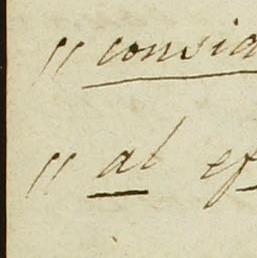 " consid
" al ef